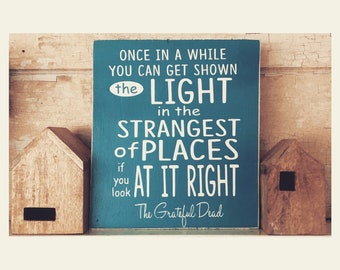 ONCE IN A WHILE
YOU CAN GET SHOWN
the LIGHT
in the
STRANGEST
of PLACES
if you look AT IT RIGHT
The Grateful Dead